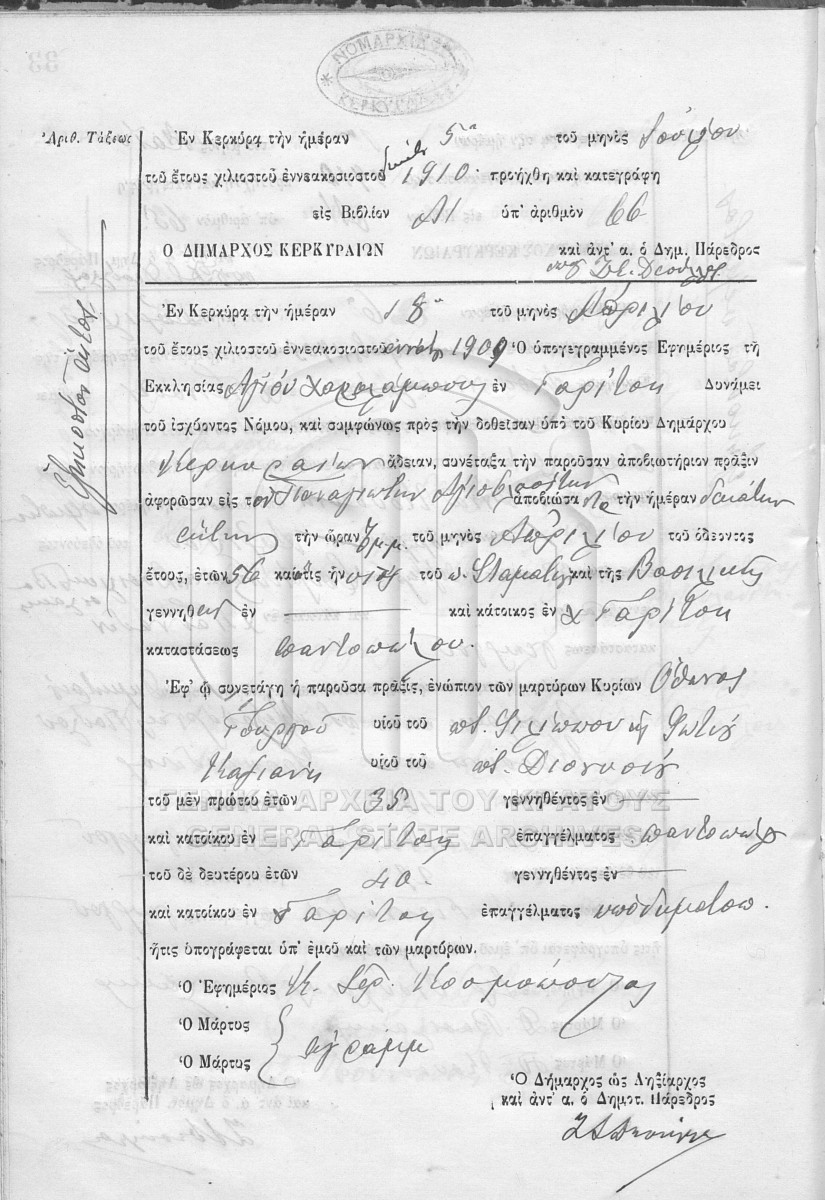 ΝΟΜΑΡΧΙΑ
ΚΕΡΚΥΡΑΣ
Ἀριθ. Τάξεως
Ἐν Κερκύρᾳ τὴν ἡμέραν 5η τοῦ μηνὸς Ἰουνίου
τοῦ ἔτους χιλιοστοῦ ἐννεακοσιοστοῦ 1910 προήχθη καὶ κατεγράφη
εἰς Βιβλίον ΑΙ ὑπ' ἀριθμὸν 66
Ὁ ΔΗΜΑΡΧΟΣ ΚΕΡΚΥΡΑΙΩΝ καὶ ἀντ' α. ὁ Δημ. Πάρεδρος
Ἑξηκοστὸν ἕκτον
Ἐν Κερκύρᾳ τὴν ἡμέραν 18 τοῦ μηνὸς Ἀπριλίου
τοῦ ἔτους χιλιοστοῦ ἐννεακοσιοστοῦ 1909 Ὁ ὑπογεγραμμένος Ἐφημέριος τῆ
Ἐκκλησίας Ἁγίου Χαραλάμπους ἐν Γαρίτσῃ Δυνάμει
τοῦ ἰσχύοντος Νόμου, καὶ συμφώνως πρὸς τὴν δοθεῖσαν ὑπὸ τοῦ Κυρίου Δημάρχου
Κερκυραίων ἄδειαν, συνέταξα τὴν παροῦσαν ἀποβιωτήριον πρᾶξιν
ἀφορῶσαν εἰς τὸν Παναγιώτην ἀποβιώσαντα τὴν ἡμέραν δεκάτην
ἕκτην τὴν ὥραν 7 μ.μ. τοῦ μηνὸς Ἀπριλίου τοῦ ὁδεοντος
ἔτους, ἐτῶν 56 καὶ ὅστις ἦν υἱὸς τοῦ π. Σταματίου καὶ τῆς Βασιλικῆς
γεννηθεὶς ἐν καὶ κάτοικος ἐν Γαρίτσῃ
καταστάσεως παντοπώλου.
Ἐφ' ᾧ συνετάγη ἡ παροῦσα πρᾶξις, ἐνώπιον τῶν μαρτύρων Κυρίων
υἱοῦ τοῦ ποτ. Φιλίππου καὶ Φωτίου
υἱοῦ τοῦ ποτ. Διονυσίου
τοῦ μὲν πρώτου ἐτῶν 35 γεννηθέντος ἐν
καὶ κατοίκου ἐν Γαρίτσῃ ἐπαγγέλματος παντοπώλου
τοῦ δὲ δευτέρου ἐτῶν 40. γεννηθέντος ἐν
καὶ κατοίκου ἐν Γαρίτσῃ ἐπαγγέλματος ὑποδηματοπ.
ἥτις ὑπογράφεται ὑπ' ἐμοῦ καὶ τῶν μαρτύρων.
Ὁ Ἐφημέριος
Ὁ Μάρτυς
Ὁ Μάρτυς
ἀγράμμ
Ὁ Δήμαρχος ὡς Ληξίαρχος
καὶ ἀντ' α. ὁ Δημοτ. Πάρεδρος
ΓΕΝΙΚΑ ΑΡΧΕΙΑ ΤΟΥ ΚΡΑΤΟΥΣ
GENERAL STATE ARCHIVES